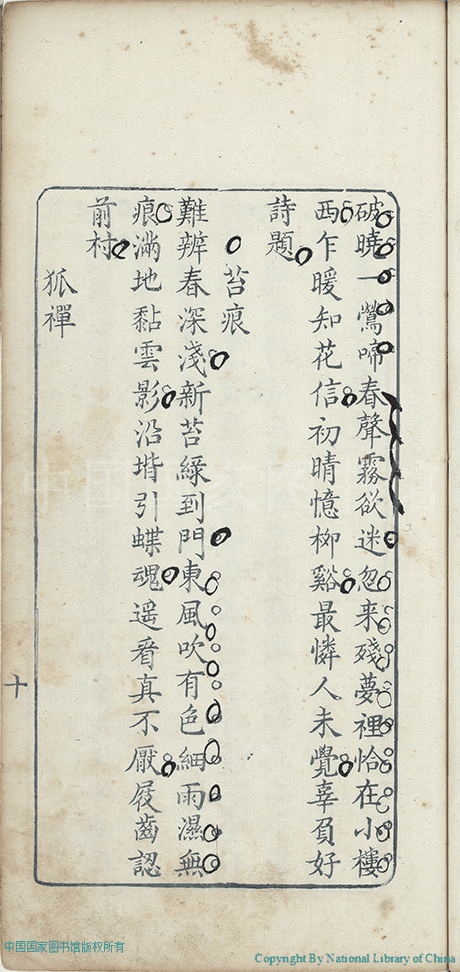 破曉一鶯啼春聲霧欲迷忽来殘夢裡恰在小樓
西乍暖知花信初晴憶柳谿最憐人未覺辜負好
詩題
苔痕
難辨春深淺新苔綠到門東風吹有色細雨濕無
痕滿地黏雲影沿堦引蝶魂遥看真不厭屐齒認
前村
狐禪
十
中国国家图书馆版权所有
Copyright By National Library of China